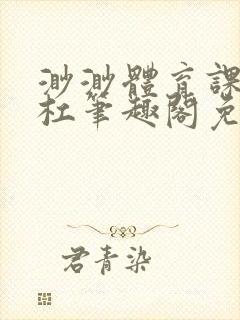 渺渺體育課
杜筆趣閣免
君青染